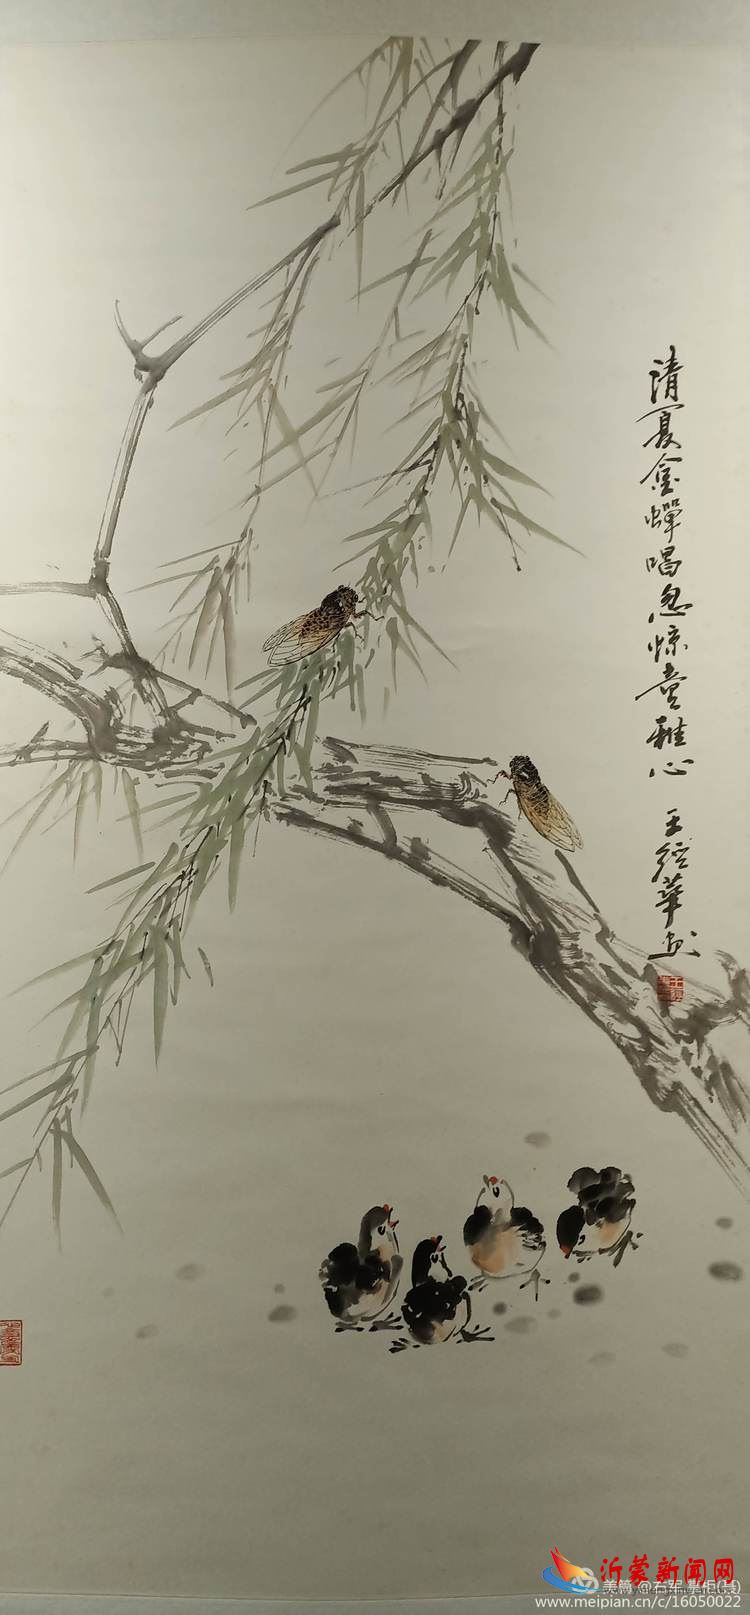 清夏金蟬唱忽惊童稚心
王經華画
沂蒙新闻网
美篇 @石军
www.meipian.cn/c/16050022